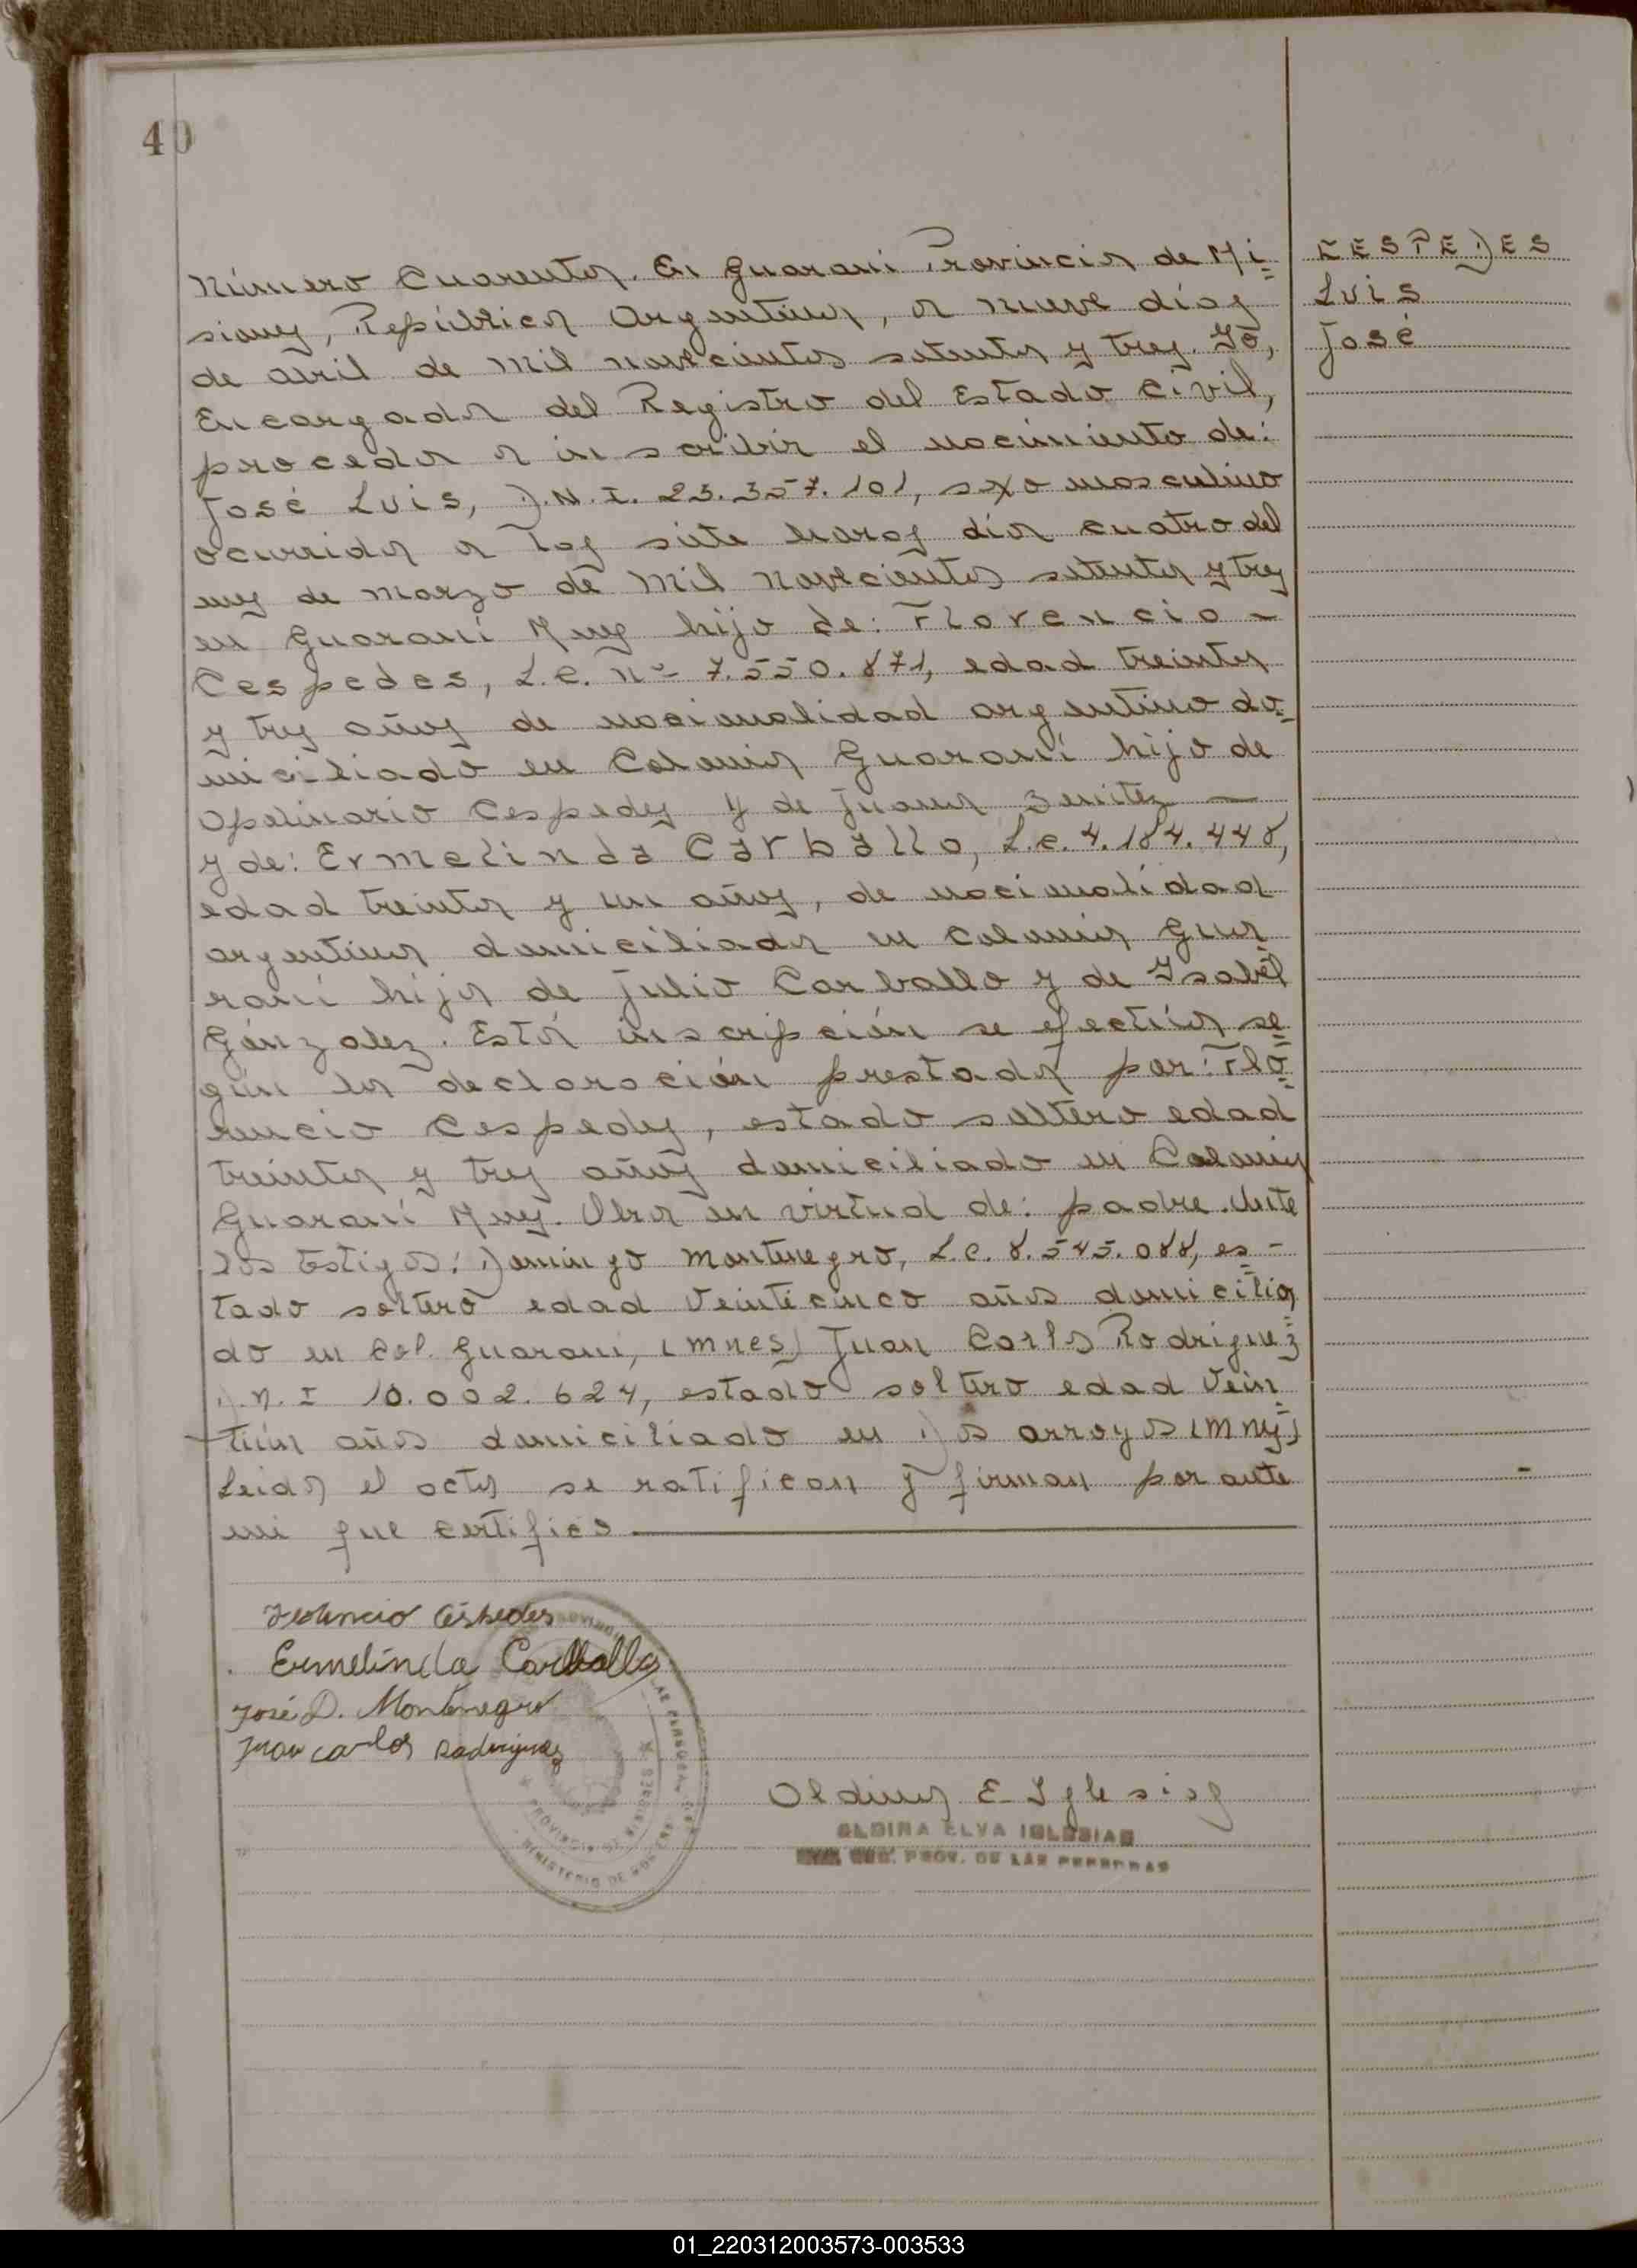 40
CESPEDES
Luis
José
Número Cuarenta. En Guaraní Provincia de Mi=
siones, República Argentina, a nueve días
de abril de Mil novecientos setenta y tres. Yo,
Encargada del Registro del Estado Civil,
procedo a inscribir el nacimiento de:
José Luis, D.N.I. 23.357.101, sexo masculino
ocurrido a las siete horas día cuatro del
mes de Marzo de Mil Novecientos setenta y tres
en Guaraní Mnes hijo de: Florencio -
Cespedes, L.E. Nº 7.550.871, edad treinta
y tres años de nacionalidad argentino do=
miciliado en Colonia Guaraní hijo de
Apolinario Cespedes y de Juana Benitez —
y de: Ermelinda Carballo, L.C. 4.184.448,
edad treinta y un años, de nacionalidad
argentina domiciliada en Colonia Gua
raní hija de Julio Carballo y de Isabel
Gónzalez. Esta inscripción se efectúa se=
gún la declaración prestada por: Flo=
rencio Cespedes, estado soltero edad
treinta y tres años domiciliado en Colonia
Guaraní Mnes. Obra en virtud de: padre. Ante
los testigos: Domingo Montenegro, L.E. 8.545.088, es-
tado soltero edad Veinticinco años domicilia=
do en Col. Guaraní, (Mnes) Juan Carlos Rodriguez
D.N.I 10.002.624, estado soltero edad Vein=
tiún años domiciliado en Dos arroyos (Mnes)
Leída el acta se ratifican y firman por ante
mi que certifico
Florencio Céspedes
Ermelinda Carballo
José D. Montenegro
Juan Carlos Rodriguez
PROVINCIA DE MISIONES
MINISTERIO DE
Aldina E. Iglesias
ALDINA ELVA IGLESIAS
REG. PROV. DE LAS PERSONAS
01_220312003573-003533